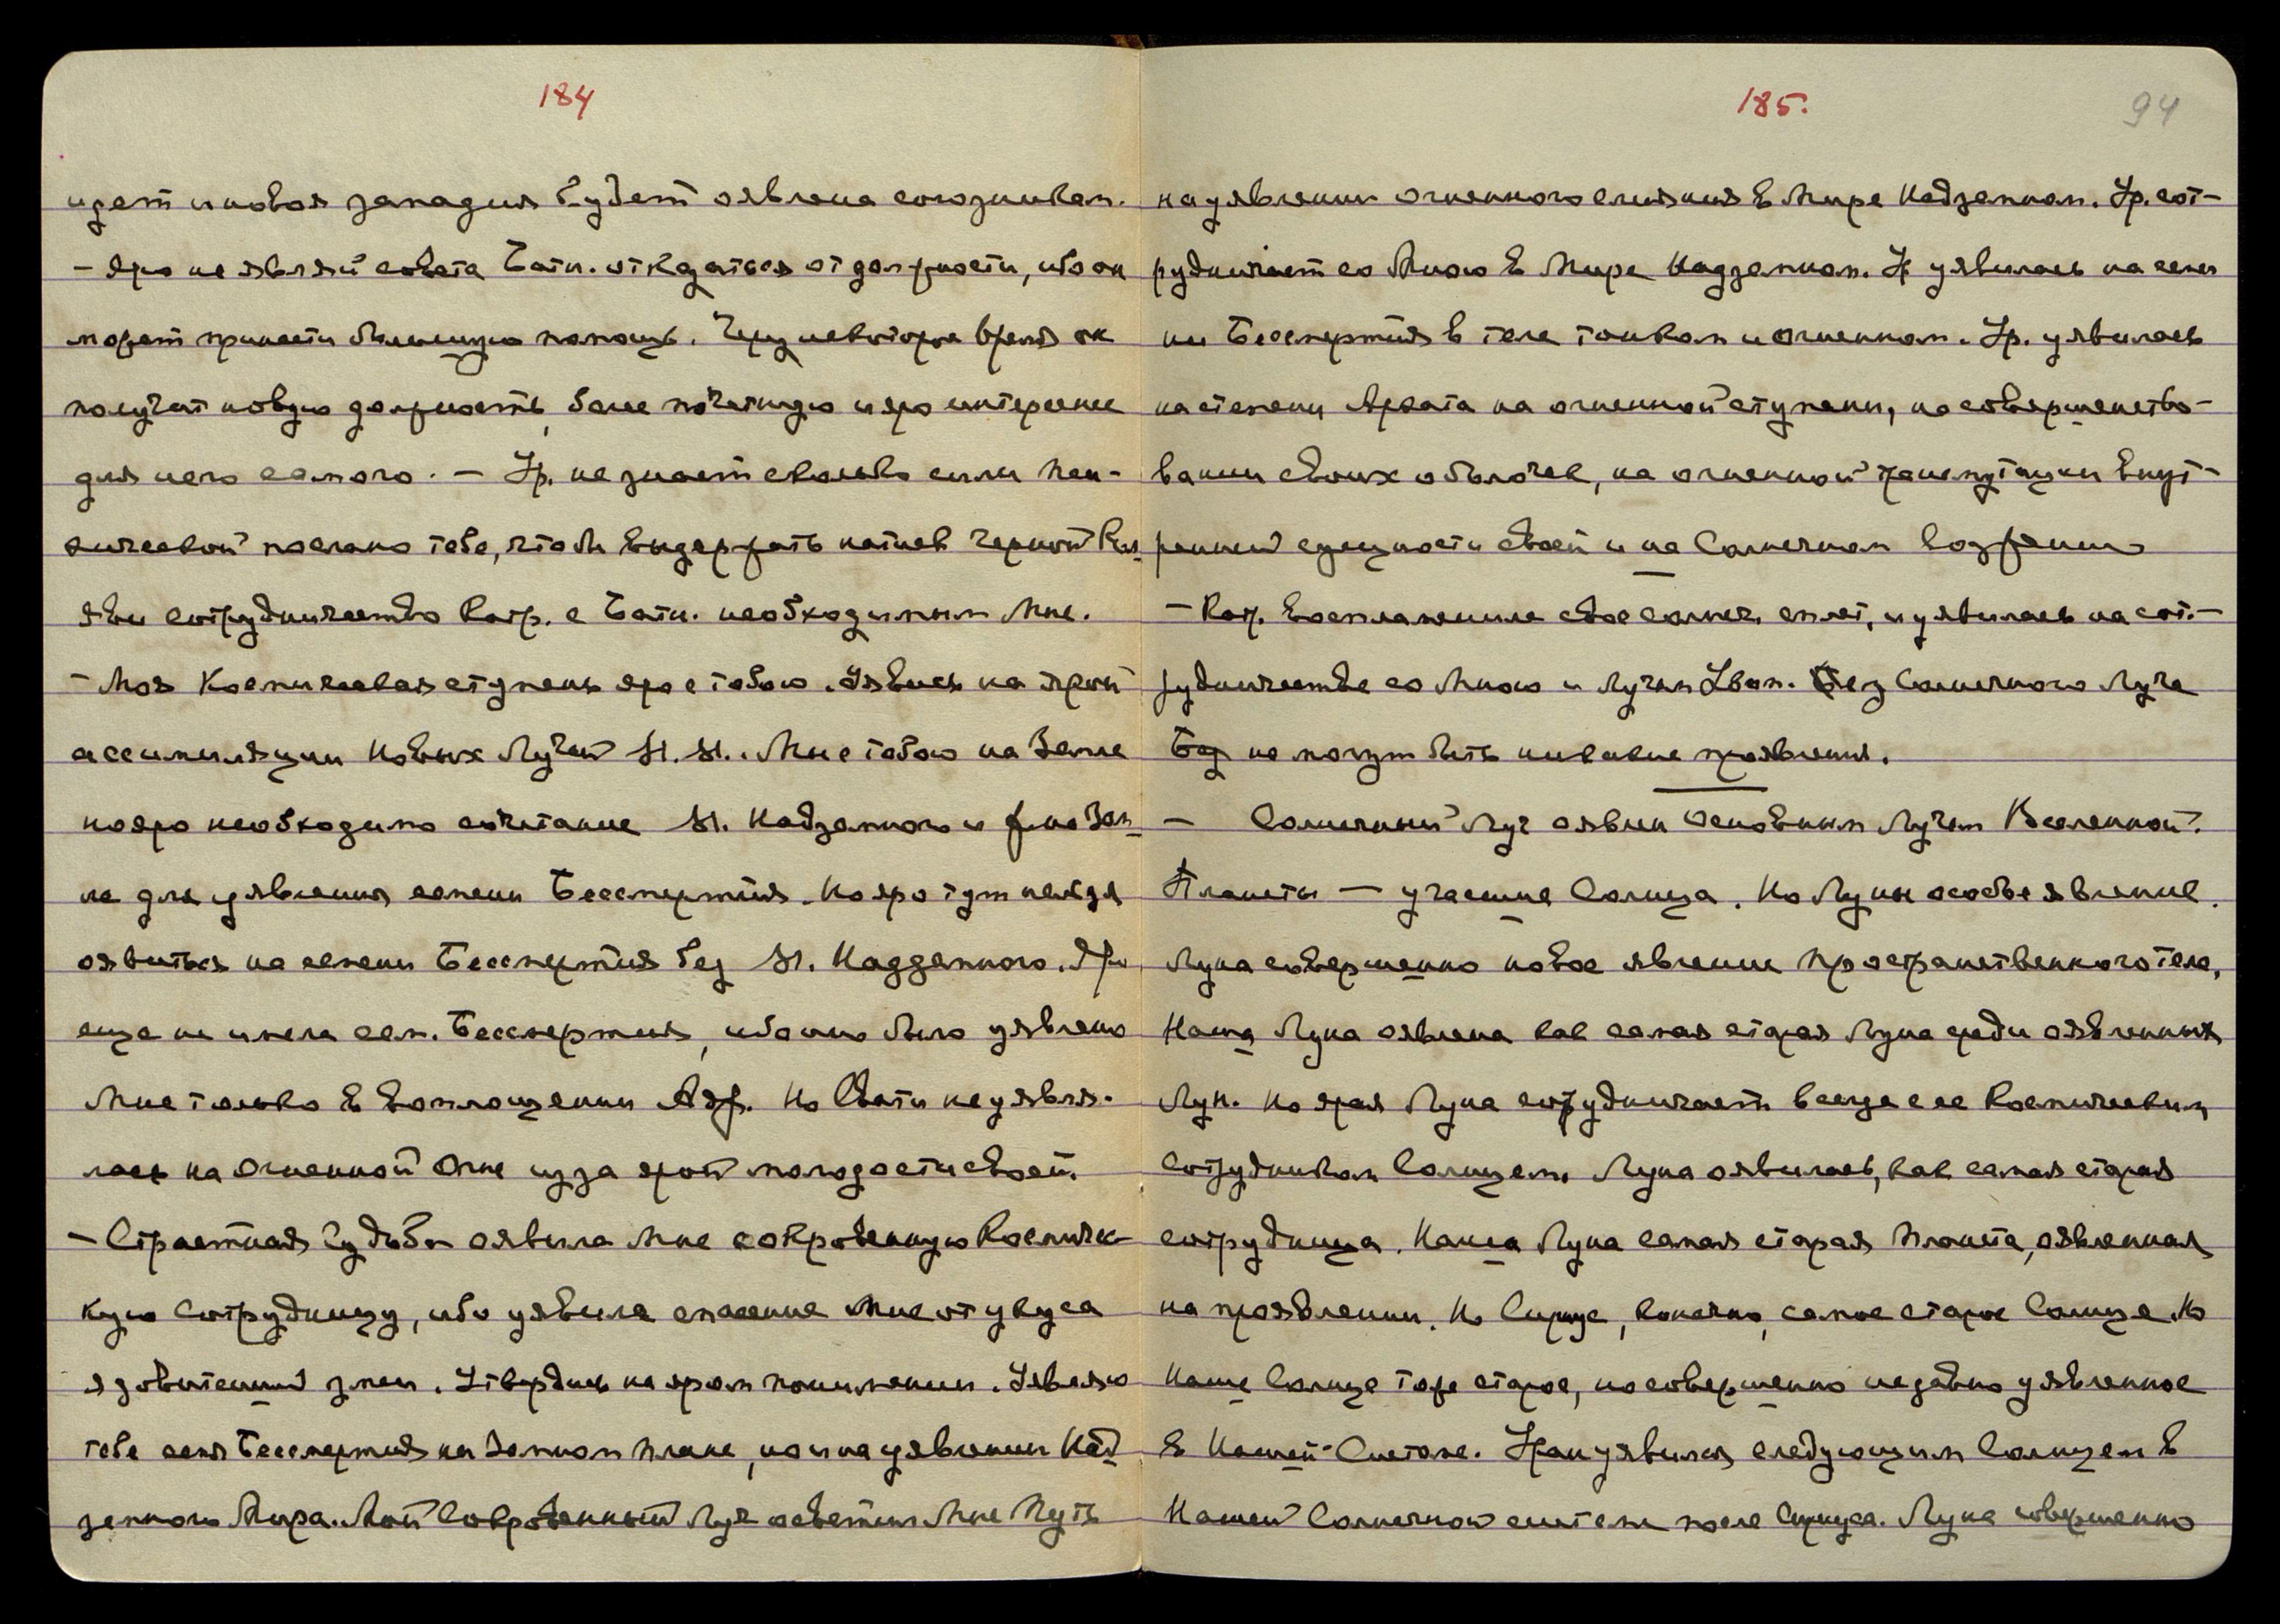 184
идет и новая западня будет оявлена союзникам.
– Яро не являй совета Бати. отказаться от должности, ибо он
может принести большую помощь. Через некоторое время он
получит новую должность, более почетную и яро интереснее
для него самого. – Ур. не знает сколько силы пси-
хической послано тебе, чтобы выдержать натиск черной
яви сотрудничество Катр. с Бати. необходимым Мне.
– Моя Космическая ступень яро с тобою. Уявись на ярой
ассимиляции Новых Лучей М. М.. Мне с тобою на Земле
но яро необходимо сочетание М. Надземного и на Зем
ле для уявления семени Бессмертия. Но яро тут нельзя
оявиться на семени Бессмертия без М. Надземного. Яро
еще не имела сем. Бессмертия, ибо оно было уявлено
Мне только в воплощении Но Свати не уявля-
лась на Огненной Огне из за ярой молодости своей.
– Страстная Судьба оявила Мне сокровенную Космичес-
кую Сотрудницу, ибо уявила спасение Мне от укуса
ядовитейшей змеи. Утвердись на яром понимании. Уявляю
тебе семя Бессмертия на Земном плане, но и на уявлении Над
земного Мира. Мой Сокровенный Луч осветил Мне Путь
185.
94
на уявлении огненного слияния в Мире Надземном. Ур. сот-
рудничает со Мною в Мире Надземном. Ур уявилась на семе
ни Бессмертия в теле тонком и огненном. Ур. уявилась
на степени Архата на огненной ступени, на совершенство-
вании своих оболочек, на огненной трансмутации внут-
ренней сущности своей и на Солнечном
– Катр. воспламенила свое солнеч. сплет, и уявилась на сот.-
рудничестве со Мною и Лучом Моим. Без Солнечного Луча
не могут быть никакие проявления.
– Солнечный Луч оявлен Основным Лучем Вселенной.
Планеты – участие Солнца. Но Луны особое явление.
Луна совершенно новое явление пространственного тела,
Наша Луна оявлена как самая старая Луна среди оявленных
Лун. Но ярая Луна сотрудничает всегда с ее Космическим
Сотрудником Солнцем. Луна оявилась, как самая старая
сотрудница. Наша Луна самая старая планета, оявленная
на проявлении. Но Сириус, конечно, самое старое Солнце. Но
Наше Солнце тоже старое, но совершенно недавно уявленное
в Нашей Системе. Уран уявился следующим Солнцем в
Нашей Солнечной системе после Сириуса. Луна совершенно